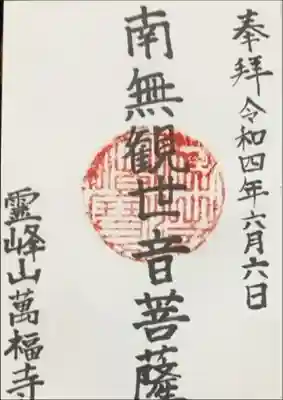 奉拝 令和四年六月六日
南無観世音菩薩
霊峰山萬福寺